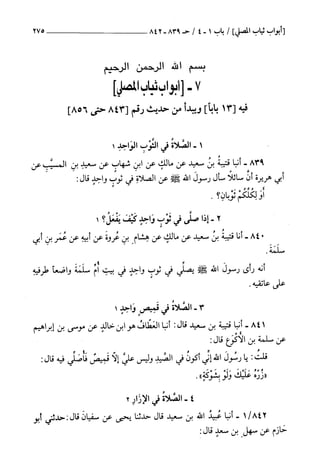 [أبواب ثياب المصلي] / باب ١ - ٤ / حـ ٨٣٩ - ٨٤٢ ــــــــــــ ٢٧٥
بسم الله الرحمن الرحيم
٧ - [أبواب ثياب المصلي]
فيه [١٣ باباً] ويبدأ من حديث رقم [٨٤٣ حتى ٨٥٦]
١ - الصَّلاةُ في الثَّوْبِ الوَاحِدِ ١
٨٣٩ - أنبا قتيبةُ بنُ سعيد عن مالك عن ابنِ شهابٍ عن سعيد بنِ المسيَّبِ عن
أبي هريرة أنَّ سائلًا سأل رسولَ الله ﷺ عن الصلاةِ في ثوبٍ واحدٍ قال:
أوَ لِكُلِّكُمْ ثَوْبانِ؟ .
٢ - إذا صلَّى في ثَوْبٍ وَاحِدٍ كَيْفَ يَفْعَلُ؟ ١
٨٤٠ - أنا قتيبةُ بنُ سعيد عن مالكٍ عن هِشام بنِ عُروةَ عن أبيهِ عن عُمَر بنِ أبي
سَلَمَةَ.
أنه رأى رسولَ الله ﷺ يصلِّي في ثوبٍ واحدٍ في بيتِ أُمِّ سلَمَةَ واضعاً طرفيهِ
على عاتقيه.
٣ - الصَّلاةُ في قَمِيصٍ وَاحِدٍ ١
٨٤١ - أنبا قتيبة بن سعيد قال: أنبا العَطَّافُ هو ابن خالدٍ عن موسى بن إبراهيم
عن سلمة بن الأكْوَعِ قال:
قلتُ: يا رسُولَ الله إنِّي أكونُ في الصَّيدِ وليس عليَّ إلَّا قَميصٌ فَأُصَلِّي فيه قال:
«زُرَّهُ عَلَيْكَ وَلَوْ بِشَوْكَةٍ».
٤ - الصَّلاةُ في الإزَارِ ٢
١/٨٤٢ - أنبا عُبيدُ الله بن سعيد قال حدثنا يحيى عن سفيانَ قال: حدثني أبو
حازمٍ عن سهلِ بنِ سعدٍ قال: